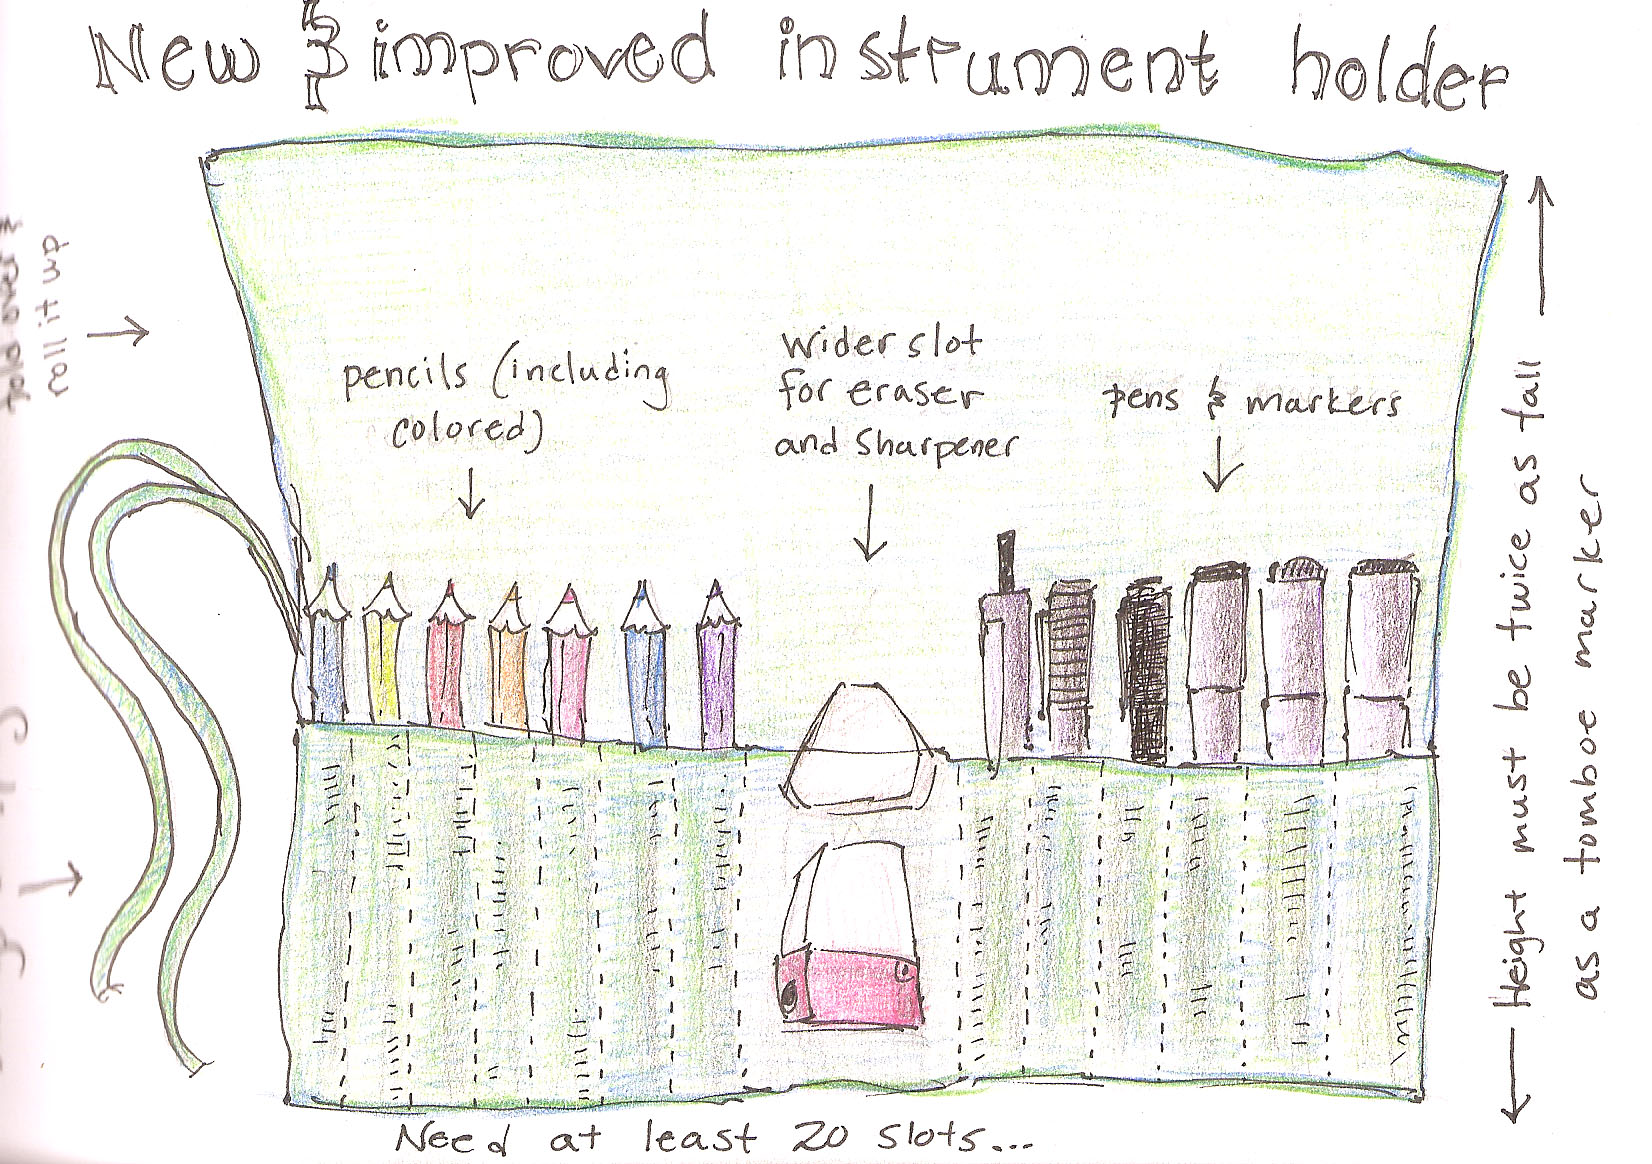 New & improved instrument holder
fold over &
roll it up
pencils (including
colored)
wider slot
for eraser
and sharpener
pens & markers
Height must be twice as tall
as a tomboe marker
Need at least 20 slots...